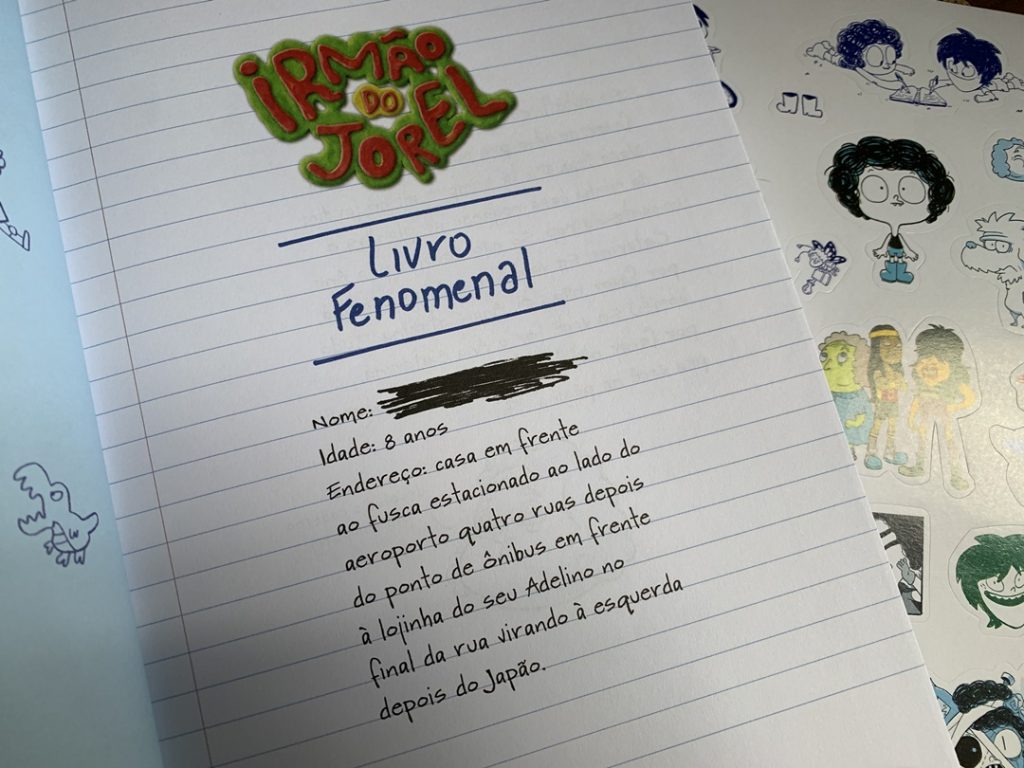 IRMÃO
DO
JOREL
Livro
Fenomenal
Nome:
Idade: 8 anos
Endereço: casa em frente
ao fusca estacionado ao lado do
aeroporto quatro ruas depois
do ponto de ônibus em frente
à lojinha do seu Adelino no
final da rua virando à esquerda
depois do Japão.